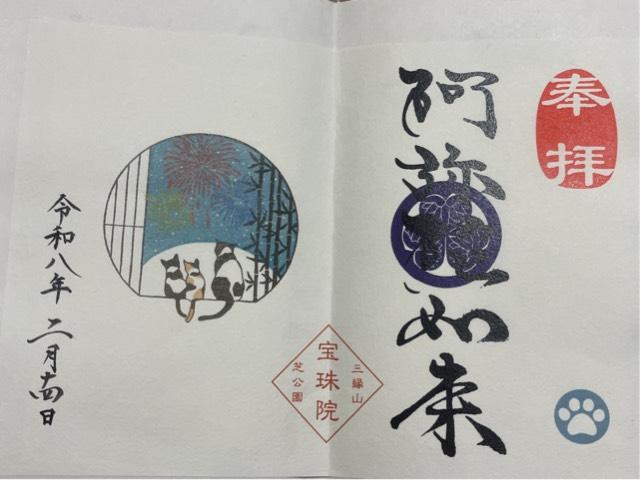 奉拝
阿弥陀如来
三縁山
宝珠院
芝公園
令和八年 二月十四日